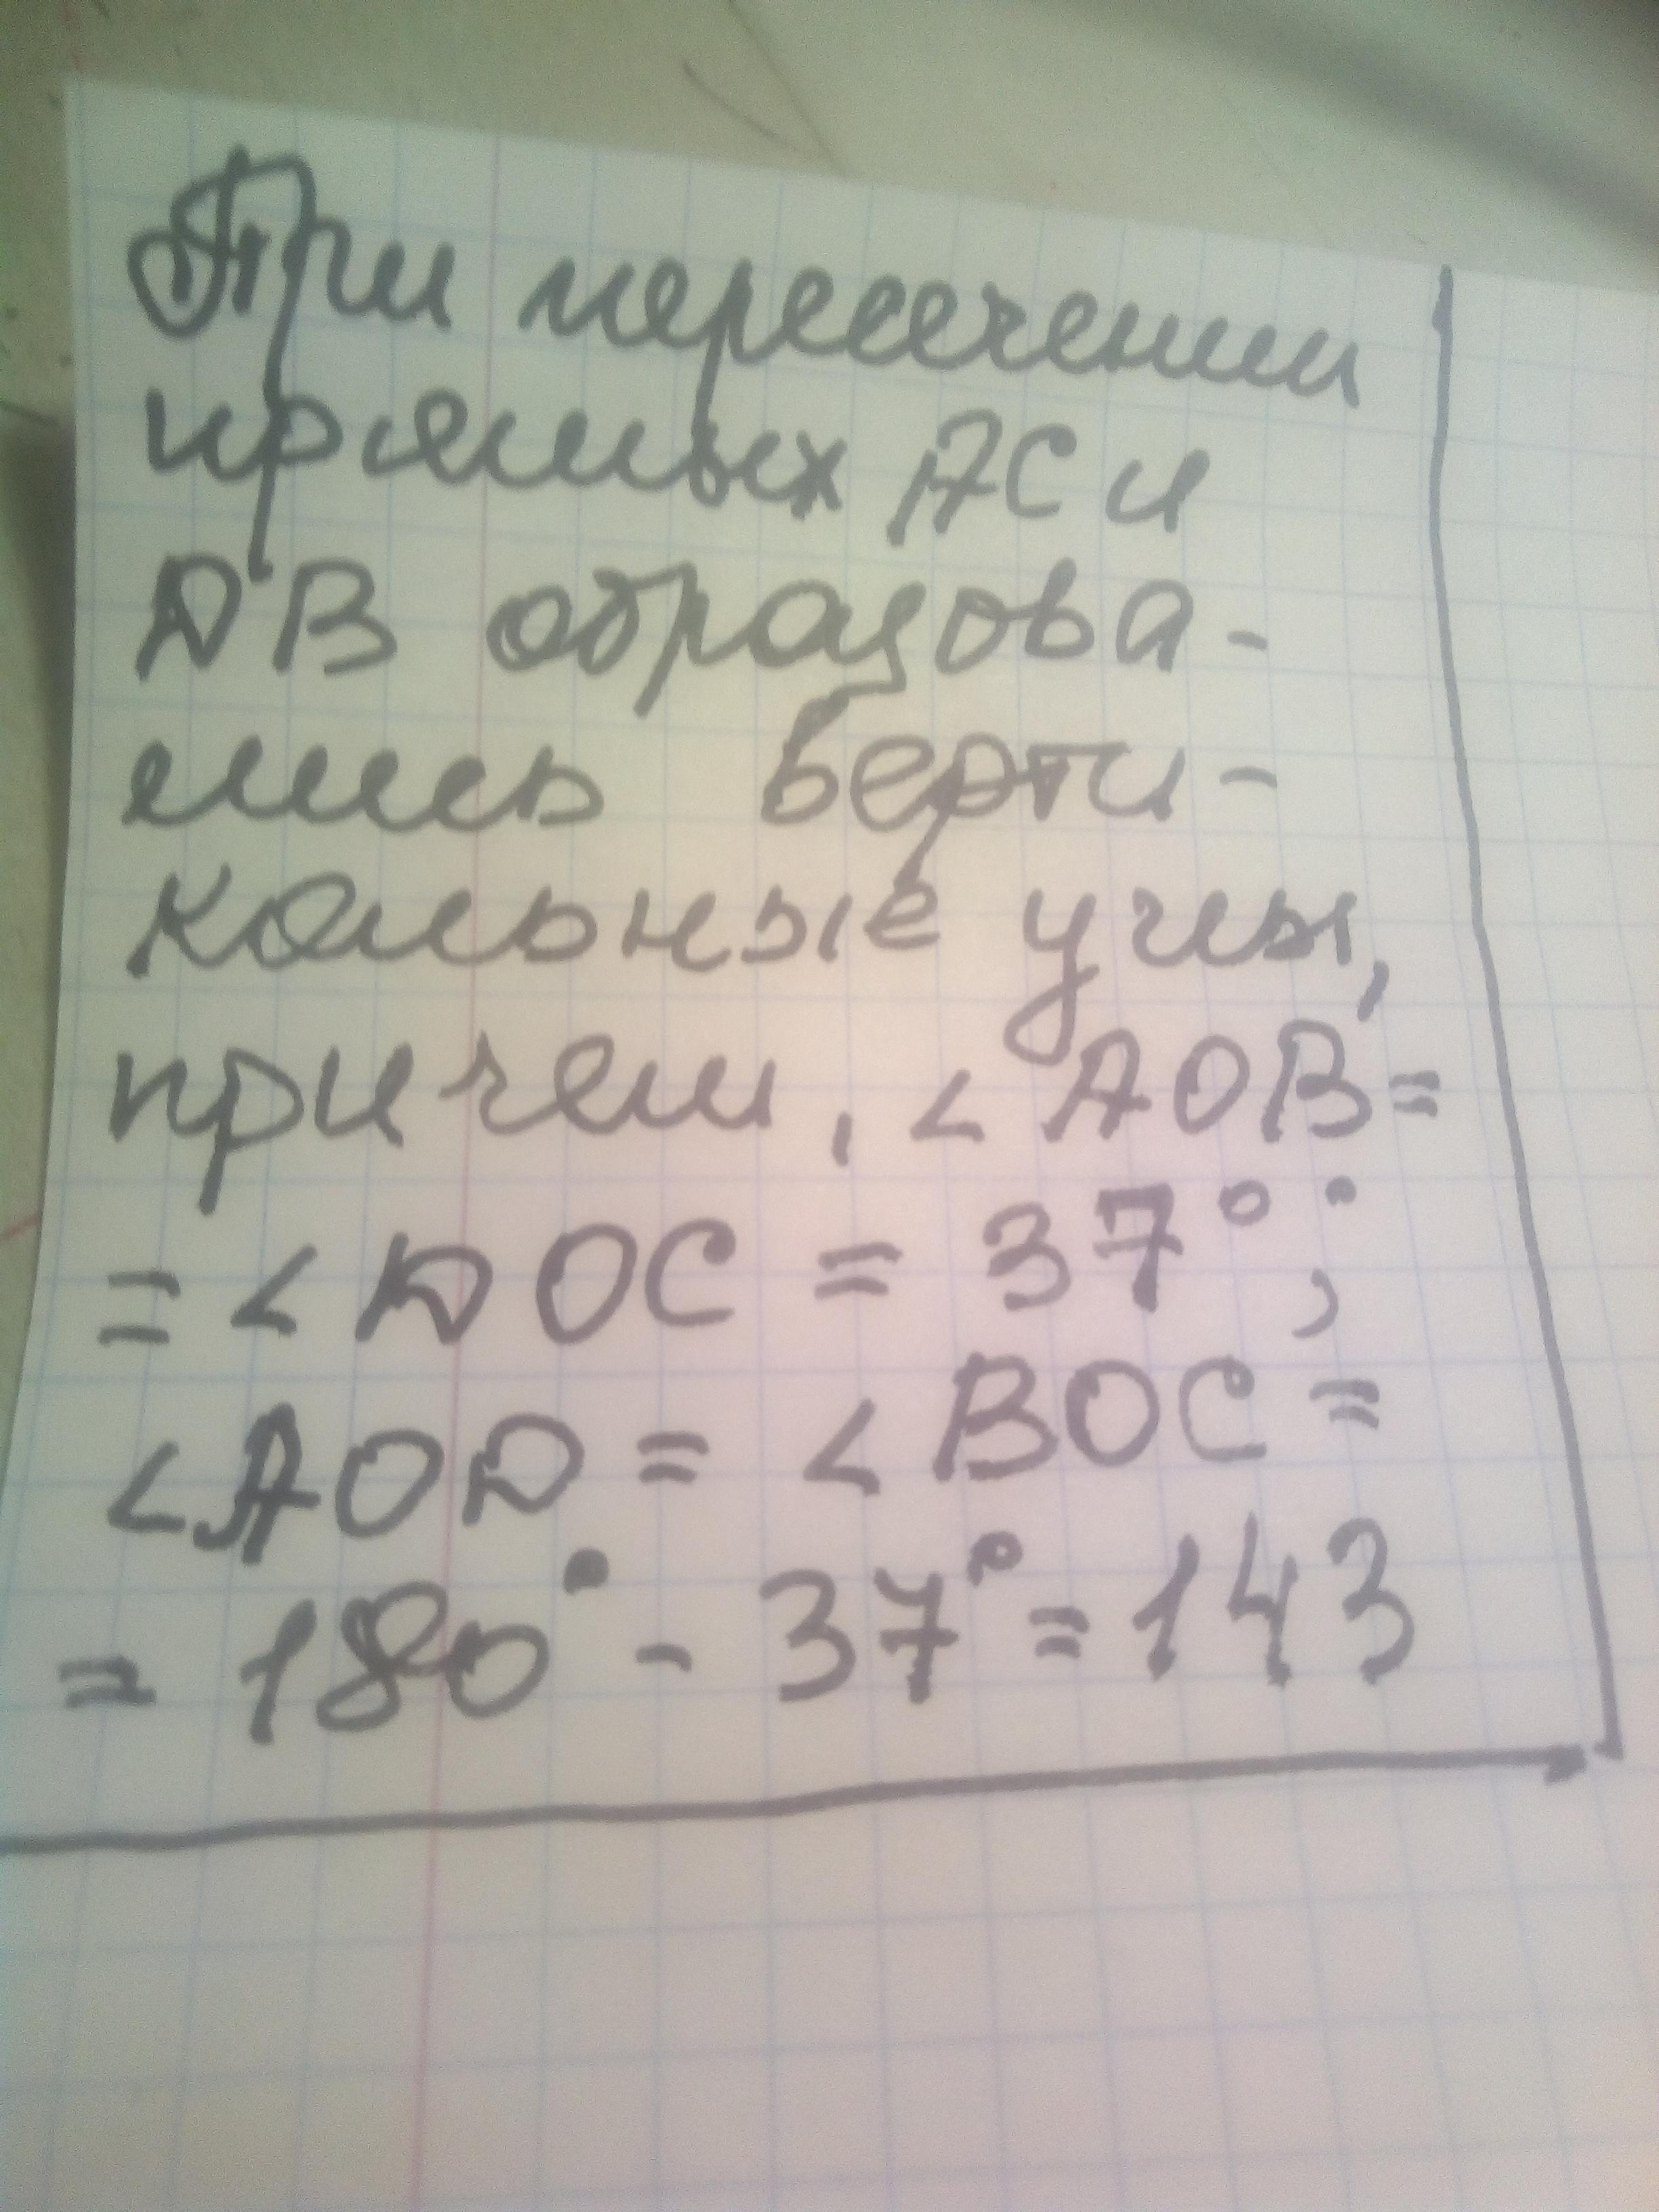 При пересечении
прямых AC и
DB образова-
лись верти-
кальные углы,
причем, ∠AOB=
=∠DOC = 37°;
∠AOD = ∠BOC =
= 180° - 37° = 143